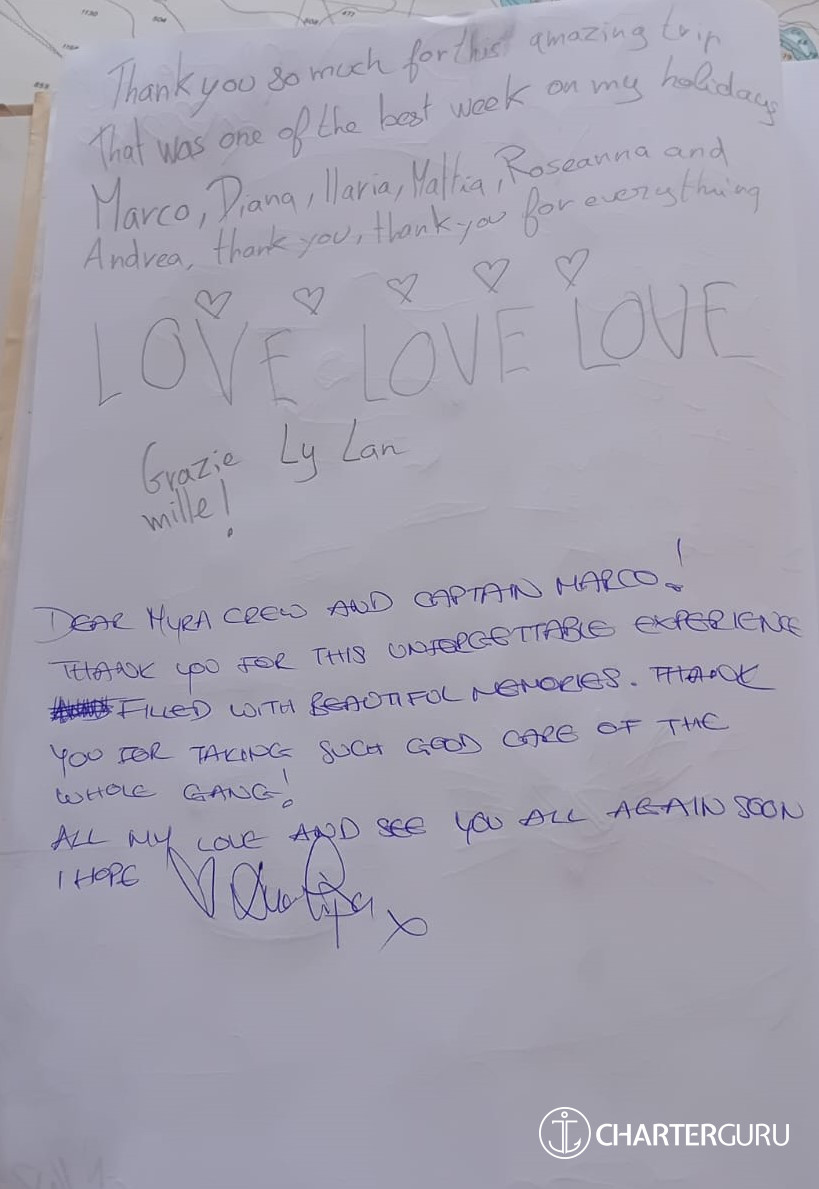 Thank you so much for this amazing trip
That was one of the best week on my holidays
Marco, Diana, Ilaria, Mattia, Roseanna and
Andrea, thank you, thank you for everything
LOVE LOVE LOVE
Grazie Ly Lan
mille!
DEAR MYRA CREW AND CAPTAIN MARCO!
THANK YOU FOR THIS UNFORGETTABLE EXPERIENCE
FILLED WITH BEAUTIFUL MEMORIES. THANK
YOU FOR TAKING SUCH GOOD CARE OF THE
WHOLE GANG!
ALL MY LOVE AND SEE YOU ALL AGAIN SOON
I HOPE
x
CHARTERGURU